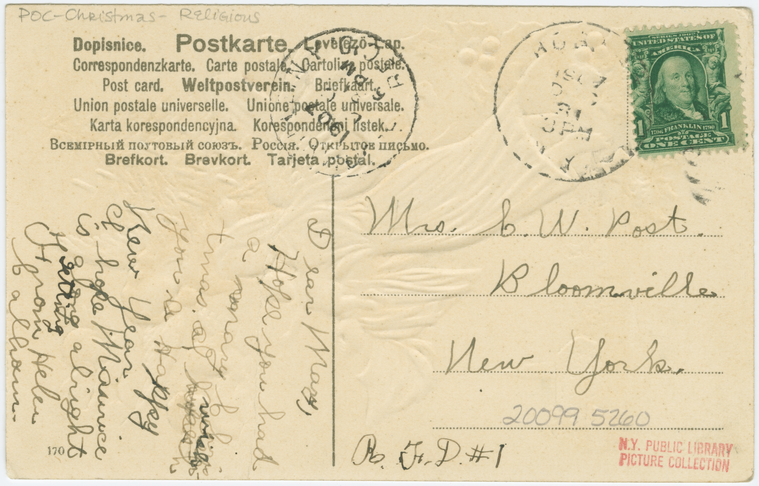 POC-Christmas-Religious
Dopisnice. Postkarte. Levelező-Lap.
Correspondenzkarte. Carte postale. Cartolina postale.
Post card. Weltpostverein. Briefkaart.
Union postale universelle. Unione postale universale.
Karta korespondencyjna. Korespondenčni listek.
Всемірный почтовый союзъ. Россія. Открытое письмо.
Brefkort. Brevkort. Tarjeta postal.
1907
31
3 PM
SERIES 1902
UNITED STATES OF
AMERICA
1706 FRANKLIN 1790
1 POSTAGE 1
ONE CENT
Mrs. C. W. Post.
Bloomville
New York.
R. F. D. #1
20099 5260
N.Y. PUBLIC LIBRARY
PICTURE COLLECTION
Dear May,
Hope you had
a merry X
tmas.
you a Happy
New Year
hope Minnie
is getting alright
From Helen
Calhoun.
170